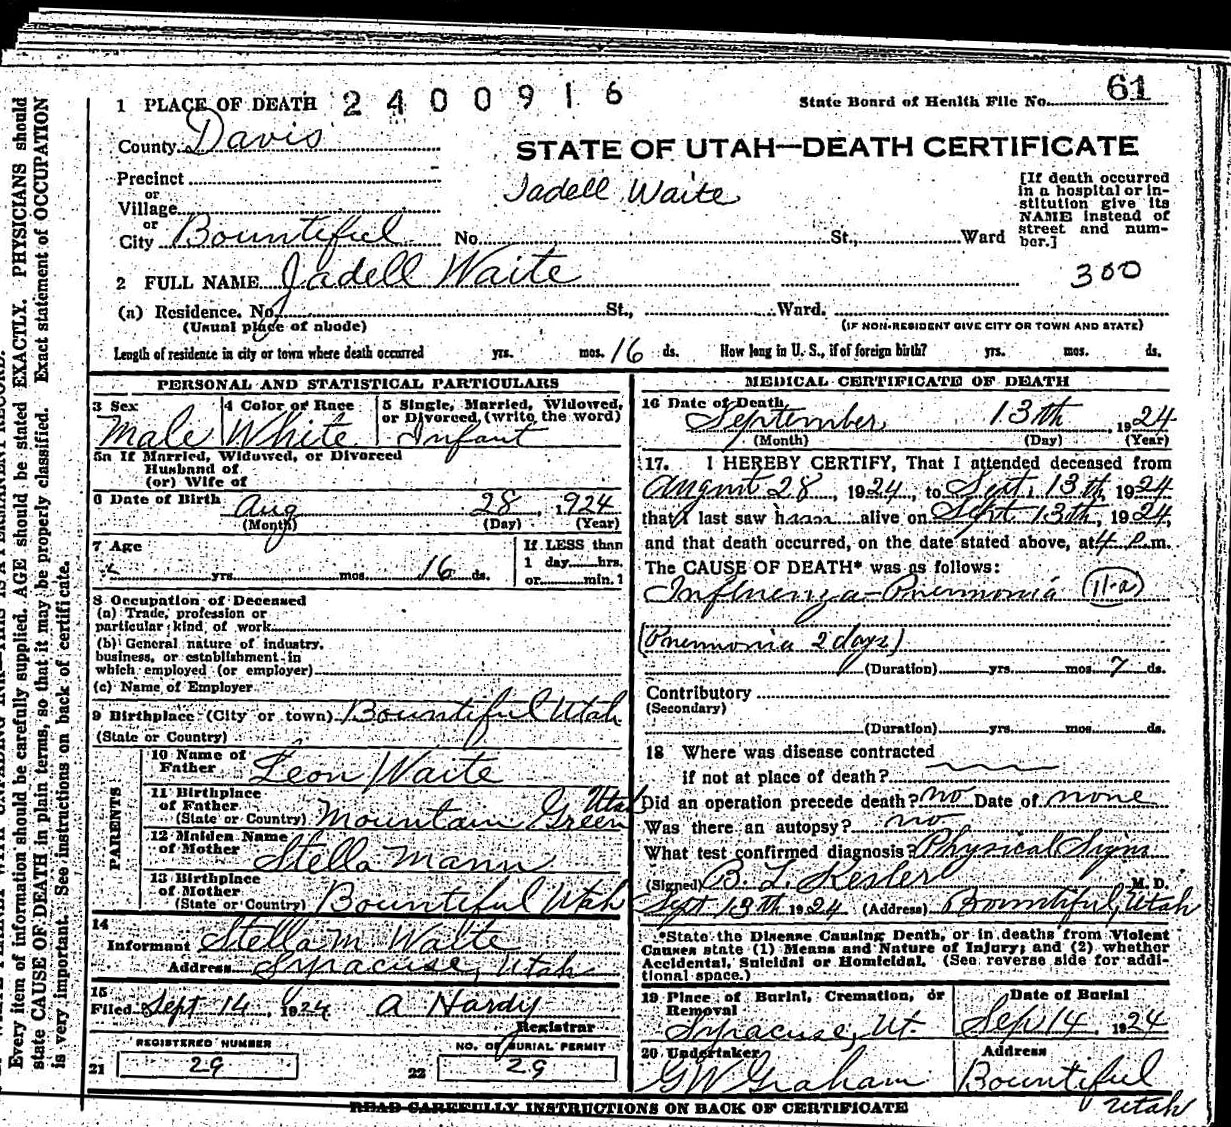 1 PLACE OF DEATH 2400916
State Board of Health File No. 61
County Davis
STATE OF UTAH—DEATH CERTIFICATE
Precinct
or
Village
or
City Bountiful No. St., Ward
Jadell Waite
[If death occurred
in a hospital or in-
stitution give its
NAME instead of
street and num-
ber.]
2 FULL NAME Jadell Waite
300
(a) Residence. No. St., Ward.
(Usual place of abode) (IF NON-RESIDENT GIVE CITY OR TOWN AND STATE)
Length of residence in city or town where death occurred yrs. mos. 16 ds. How long in U. S., if of foreign birth? yrs. mos. ds.
PERSONAL AND STATISTICAL PARTICULARS
3 Sex 4 Color or Race 5 Single, Married, Widowed,
or Divorced, (write the word)
Male White Infant
5a If Married, Widowed, or Divorced
Husband of
(or) Wife of
6 Date of Birth Aug 28, 1924
(Month) (Day) (Year)
7 Age If LESS than
1 day hrs.
yrs. mos. 16 ds. or min.?
8 Occupation of Deceased
(a) Trade, profession or
particular kind of work
(b) General nature of industry,
business, or establishment in
which employed (or employer)
(c) Name of Employer
9 Birthplace (City or town) Bountiful Utah
(State or Country)
PARENTS
10 Name of
Father Leon Waite
11 Birthplace
of Father
(State or Country) Mountain Green Utah
12 Maiden Name
of Mother Stella Mann
13 Birthplace
of Mother
(State or Country) Bountiful Utah
14
Informant Stella M Waite
Address Syracuse, Utah
15
Filed Sept 14, 1924 A Hardy
Registrar
REGISTERED NUMBER NO. OF BURIAL PERMIT
21 29 22 29
MEDICAL CERTIFICATE OF DEATH
16 Date of Death
September 13th, 1924
(Month) (Day) (Year)
17. I HEREBY CERTIFY, That I attended deceased from
August 28, 1924, to Sept. 13th 1924
that I last saw h alive on Sept 13th, 1924,
and that death occurred, on the date stated above, at 4 P.m.
The CAUSE OF DEATH* was as follows:
Influenza-Pnemonia 11-a
(Pnemonia 2 days)
(Duration) yrs. mos. 7 ds.
Contributory
(Secondary)
(Duration) yrs. mos. ds.
18 Where was disease contracted
if not at place of death?
Did an operation precede death? no Date of none
Was there an autopsy? no
What test confirmed diagnosis? Physical Signs
(Signed) B. L. Kesler M. D.
Sept 13th 1924 (Address) Bountiful, Utah
*State the Disease Causing Death, or in deaths from Violent
Causes state (1) Means and Nature of Injury; and (2) whether
Accidental, Suicidal or Homicidal. (See reverse side for addi-
tional space.)
19 Place of Burial, Cremation, or Date of Burial
Removal
Syracuse, Ut. Sep. 14, 1924
20 Undertaker Address
GW Graham Bountiful
Utah
READ CAREFULLY INSTRUCTIONS ON BACK OF CERTIFICATE
Every item of information should be carefully supplied. AGE should be stated EXACTLY. PHYSICIANS should
state CAUSE OF DEATH in plain terms, so that it may be properly classified. Exact statement of OCCUPATION
is very important. See instructions on back of certificate.